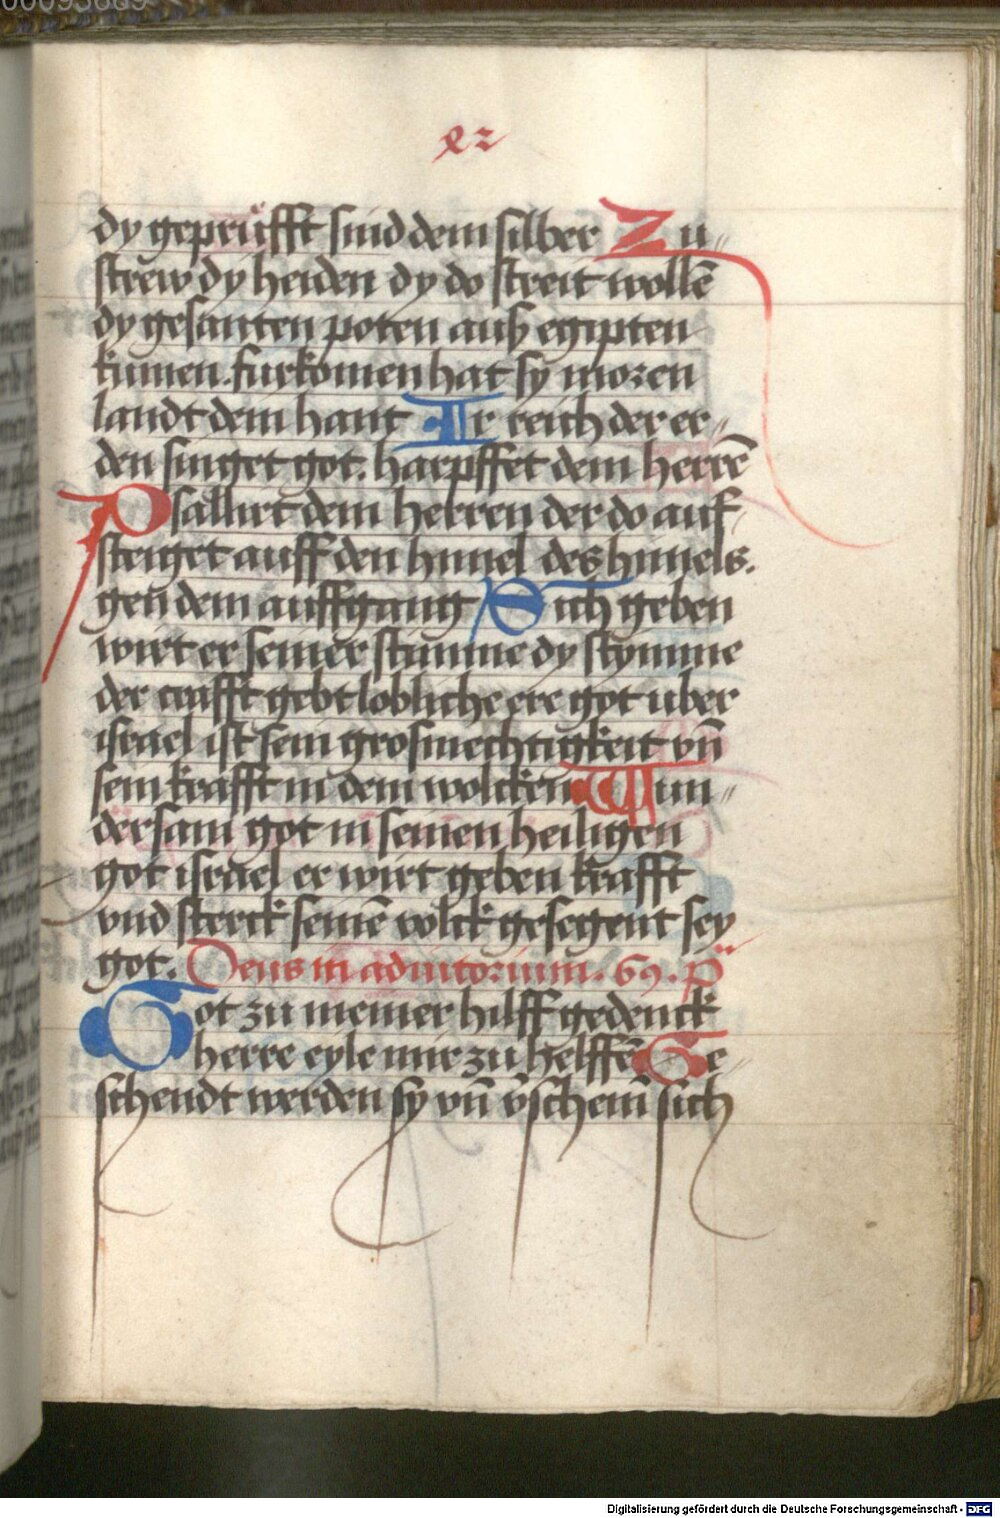 00093689
82
dy geprüfft sind dem silber Zu„
strew dy heiden dy do streit wollē
dy gesanten poten auß egipten
kumen. furkomen hat sy moren
landt dem hant Ir reich der er„
den singet got. harpffet dem herrē
Psallirt dem herren der do auf
steiget auff den himel des himels.
gen dem auffgang Sich geben
wirt er seiner stimme dy stymme
der crafft gebt lobliche ere got uber
israel ist sein grosmechtigkeit vn̄
sein krafft in dem wolcken Wun„
dersam got in seinen heiligen
got israel er wirt geben krafft
vnd sterck seinē volck gesegent sey
got. Deus in adiutorium. 69. p̄
Got zu meiner hilff gedenck
herre eyle mir zu helffē Ge
schendt werden sy vn̄ v̄schem̄ sich
Digitalisierung gefördert durch die Deutsche Forschungsgemeinschaft - DFG